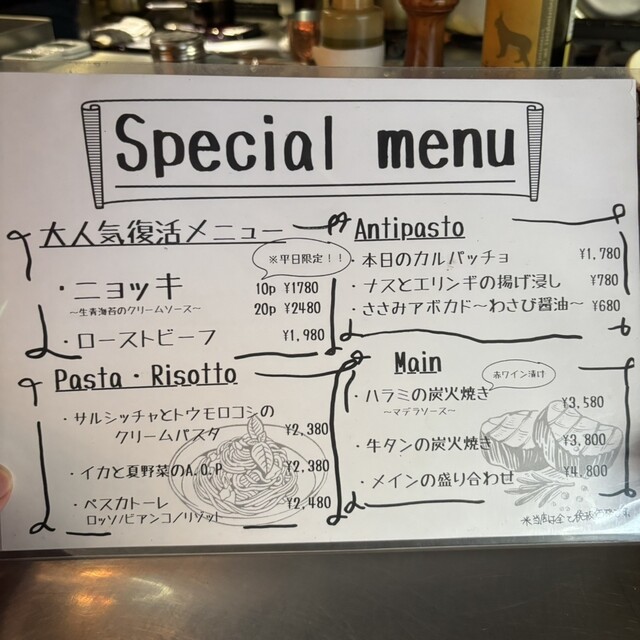 Special menu
大人気復活メニュー
※平日限定!!
・ニョッキ 10p ¥1780
～生青海苔のクリームソース～ 20p ¥2480
・ローストビーフ ¥1,980
Antipasto
・本日のカルパッチョ ¥1,780
・ナスとエリンギの揚げ浸し ¥780
・ささみアボカド～わさび醤油～ ¥680
Pasta・Risotto
・サルシッチャとトウモロコシの
クリームパスタ ¥2,380
・イカと夏野菜のA.O.P ¥2,380
・ペスカトーレ ¥2,480
ロッソ/ビアンコ/リゾット
Main
赤ワイン漬け
・ハラミの炭火焼き ¥3,580
～マデラソース～
・牛タンの炭火焼き ¥3,800
・メインの盛り合わせ ¥4,800
※当店は全て税抜